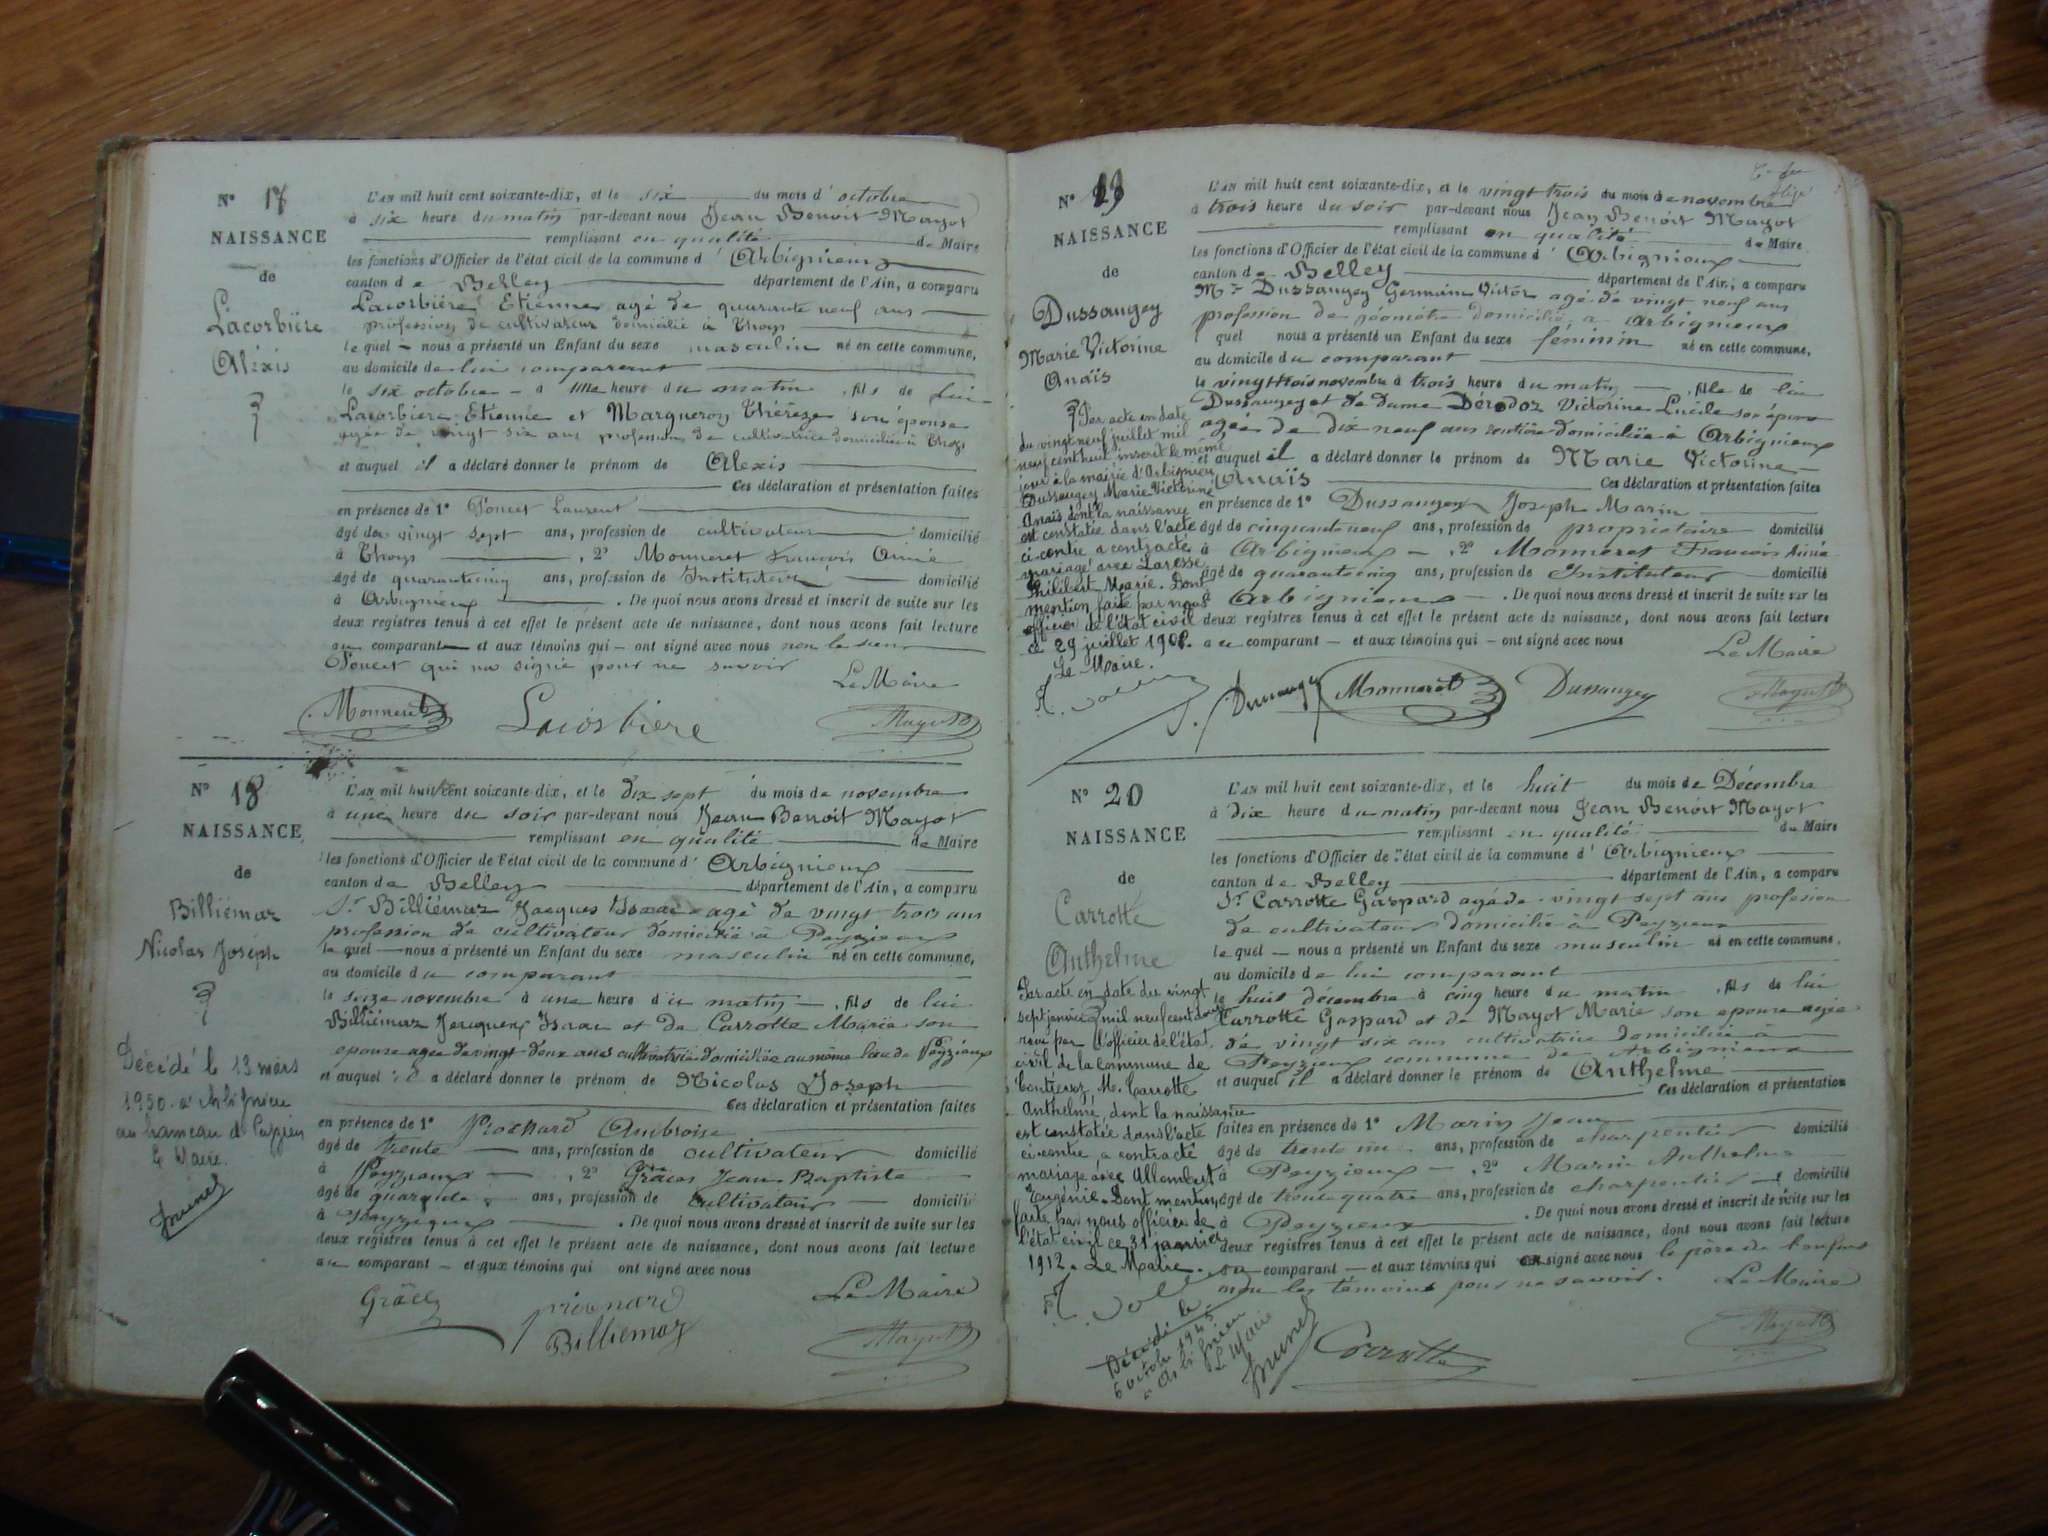 N° 17
NAISSANCE
de
Lacorbière
Alexis
L'AN mil huit cent soixante-dix, et le six du mois d'octobre
à six heure du matin par-devant nous Jean Benoit Mayot
remplissant en qualité de Maire
les fonctions d'Officier de l'état civil de la commune d'Arbignieux
canton de Belley département de l'Ain, a comparu
Lacorbière Etienne agé de quarante neuf ans
profession de cultivateur domicilié à Thoys
le quel nous a présenté un Enfant du sexe masculin né en cette commune,
au domicile de lui comparant
le six octobre à une heure du matin, fils de lui
Lacorbière Etienne et Margueron Thérèze son épouse
agée de vingt six ans profession de cultivatrice domiciliée à Thoys
et auquel il a déclaré donner le prénom de Alexis
Ces déclaration et présentation faites
en présence de 1° Poncet Laurent
âgé de vingt sept ans, profession de cultivateur domicilié
à Thoys, 2° Monneret François Aimé
âgé de quarantecinq ans, profession de Instituteur domicilié
à Arbignieux. De quoi nous avons dressé et inscrit de suite sur les
deux registres tenus à cet effet le présent acte de naissance, dont nous avons fait lecture
au comparant et aux témoins qui ont signé avec nous non le sieur
Poncet qui na signé pour ne savoir
Le Maire
Monneret Lacorbière Mayot
N° 18
NAISSANCE
de
Billiémaz
Nicolas Joseph
Décédé le 13 mars
1950 à Arbignieu
au hameau de Peyzieu
Le Maire.
Brunet
L'AN mil huit cent soixante-dix, et le dix sept du mois de novembre
à une heure du soir par-devant nous Jean Benoit Mayot
remplissant en qualité de Maire
les fonctions d'Officier de l'état civil de la commune d'Arbignieux
canton de Belley département de l'Ain, a comparu
Sr Billiémaz Jacques Isaac agé de vingt trois ans
profession de cultivateur domicilié à Peyzieux
le quel nous a présenté un Enfant du sexe masculin né en cette commune,
au domicile du comparant
le seize novembre à une heure du matin, fils de lui
Billiémaz Jacques Isaac et de Carrotte Marie son
epouse agee de vingt deux ans cultivatrice domiciliée au même lieu de Peyzieux
et auquel il a déclaré donner le prénom de Nicolas Joseph
Ces déclaration et présentation faites
en présence de 1° Ambroise
âgé de trente ans, profession de cultivateur domicilié
à Peyzieux, 2° Jean Baptiste
âgé de quarante ans, profession de cultivateur domicilié
à Peyzieux. De quoi nous avons dressé et inscrit de suite sur les
deux registres tenus à cet effet le présent acte de naissance, dont nous avons fait lecture
au comparant et aux témoins qui ont signé avec nous
Le Maire
Billiemaz Mayot
N° 19
NAISSANCE
de
Dussaugey
Marie Victorine
Anaïs
Par acte en date
du vingt neuf juillet mil
neuf cent huit inscrit le même
jour à la mairie d'Arbignieu
Dussaugey Marie Victorine
Anaïs dont la naissance
est constatée dans l'acte
ci-contre a contracté
mariage avec Laresse
Philibert Marie. Dont
mention faite par nous
officier de l'état civil
ce 29 juillet 1908.
Le Maire.
L'AN mil huit cent soixante-dix, et le vingt trois du mois de novembre
à trois heure du soir par-devant nous Jean Benoit Mayot
remplissant en qualité de Maire
les fonctions d'Officier de l'état civil de la commune d'Arbignieux
canton de Belley département de l'Ain, a comparu
Mr Dussaugey Germain Victor agé de vingt neuf ans
profession de géomètre domicilié à Arbignieux
quel nous a présenté un Enfant du sexe féminin né en cette commune,
au domicile du comparant
le vingt trois novembre à trois heure du matin, fille de lui
Dussaugey et de dame Dérodoz Victorine Lucile son épouse
agée de dix neuf ans rentière domiciliée à Arbignieux
et auquel il a déclaré donner le prénom de Marie Victorine
Anaïs Ces déclaration et présentation faites
en présence de 1° Dussaugey Joseph Marin
âgé de cinquante neuf ans, profession de propriétaire domicilié
à Arbignieux, 2° Monneret François Aimé
âgé de quarantecinq ans, profession de Instituteur domicilié
à Arbignieux. De quoi nous avons dressé et inscrit de suite sur les
deux registres tenus à cet effet le présent acte de naissance, dont nous avons fait lecture
au comparant et aux témoins qui ont signé avec nous
Le Maire
Dussaugey Monneret Dussaugey Mayot
N° 20
NAISSANCE
de
Carrotte
Anthelme
Par acte en date du vingt
sept janvier mil neuf cent douze
reçu par l'officier de l'état
civil de la commune de
M. Carrotte
Anthelme, dont la naissance
est constatée dans l'acte
ci-contre, a contracté
mariage avec Allombert
Eugénie. Dont mention
faite par nous officier de
l'état civil ce 31 janvier
1912. Le Maire.
Décédé le
6 octobre 1945
à Arbignieu
Le Maire
Brunet
L'AN mil huit cent soixante-dix, et le huit du mois de Décembre
à dix heure du matin par-devant nous Jean Benoit Mayot
remplissant en qualité de Maire
les fonctions d'Officier de l'état civil de la commune d'Arbignieux
canton de Belley département de l'Ain, a comparu
Sr Carrotte Gaspard agé de vingt sept ans profession
de cultivateur domicilié à Peyzieux
le quel nous a présenté un Enfant du sexe masculin né en cette commune,
au domicile de lui comparant
le huit décembre à cinq heure du matin, fils de lui
Carrotte Gaspard et de Mayot Marie son epouse agée
de vingt six ans cultivatrice domiciliée à
Peyzieux commune de Arbignieux
et auquel il a déclaré donner le prénom de Anthelme
Ces déclaration et présentation
faites en présence de 1° Marin Jean
âgé de trente un ans, profession de charpentier domicilié
à Peyzieux, 2° Marin Anthelme
âgé de trente quatre ans, profession de charpentier domicilié
à Peyzieux. De quoi nous avons dressé et inscrit de suite sur les
deux registres tenus à cet effet le présent acte de naissance, dont nous avons fait lecture
au comparant et aux témoins qui on signé avec nous le père de l'enfant
non les témoins pour ne savoir. Le Maire
Carrotte Mayot